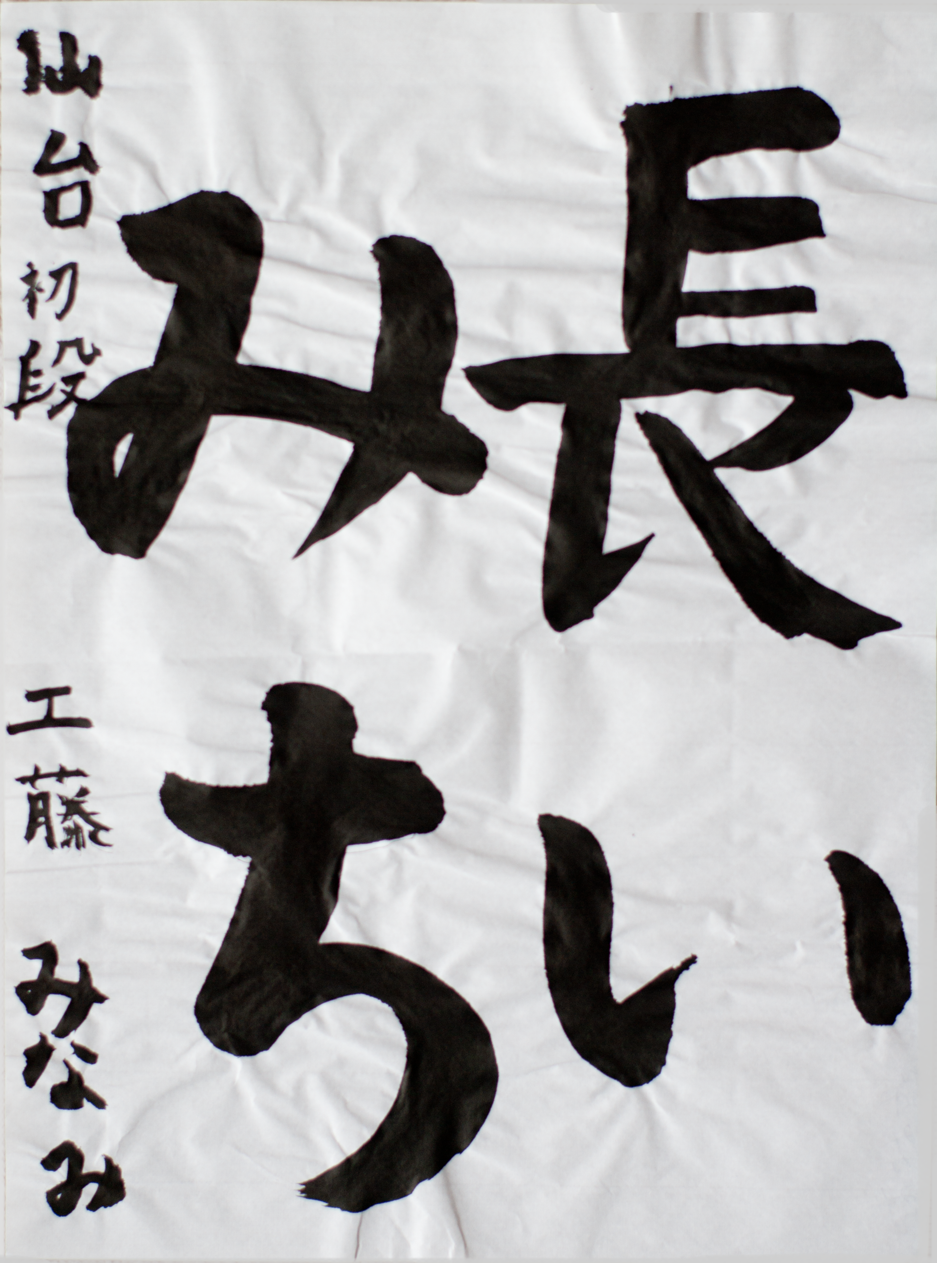 長い
みち
仙台 初段 工藤 みなみ